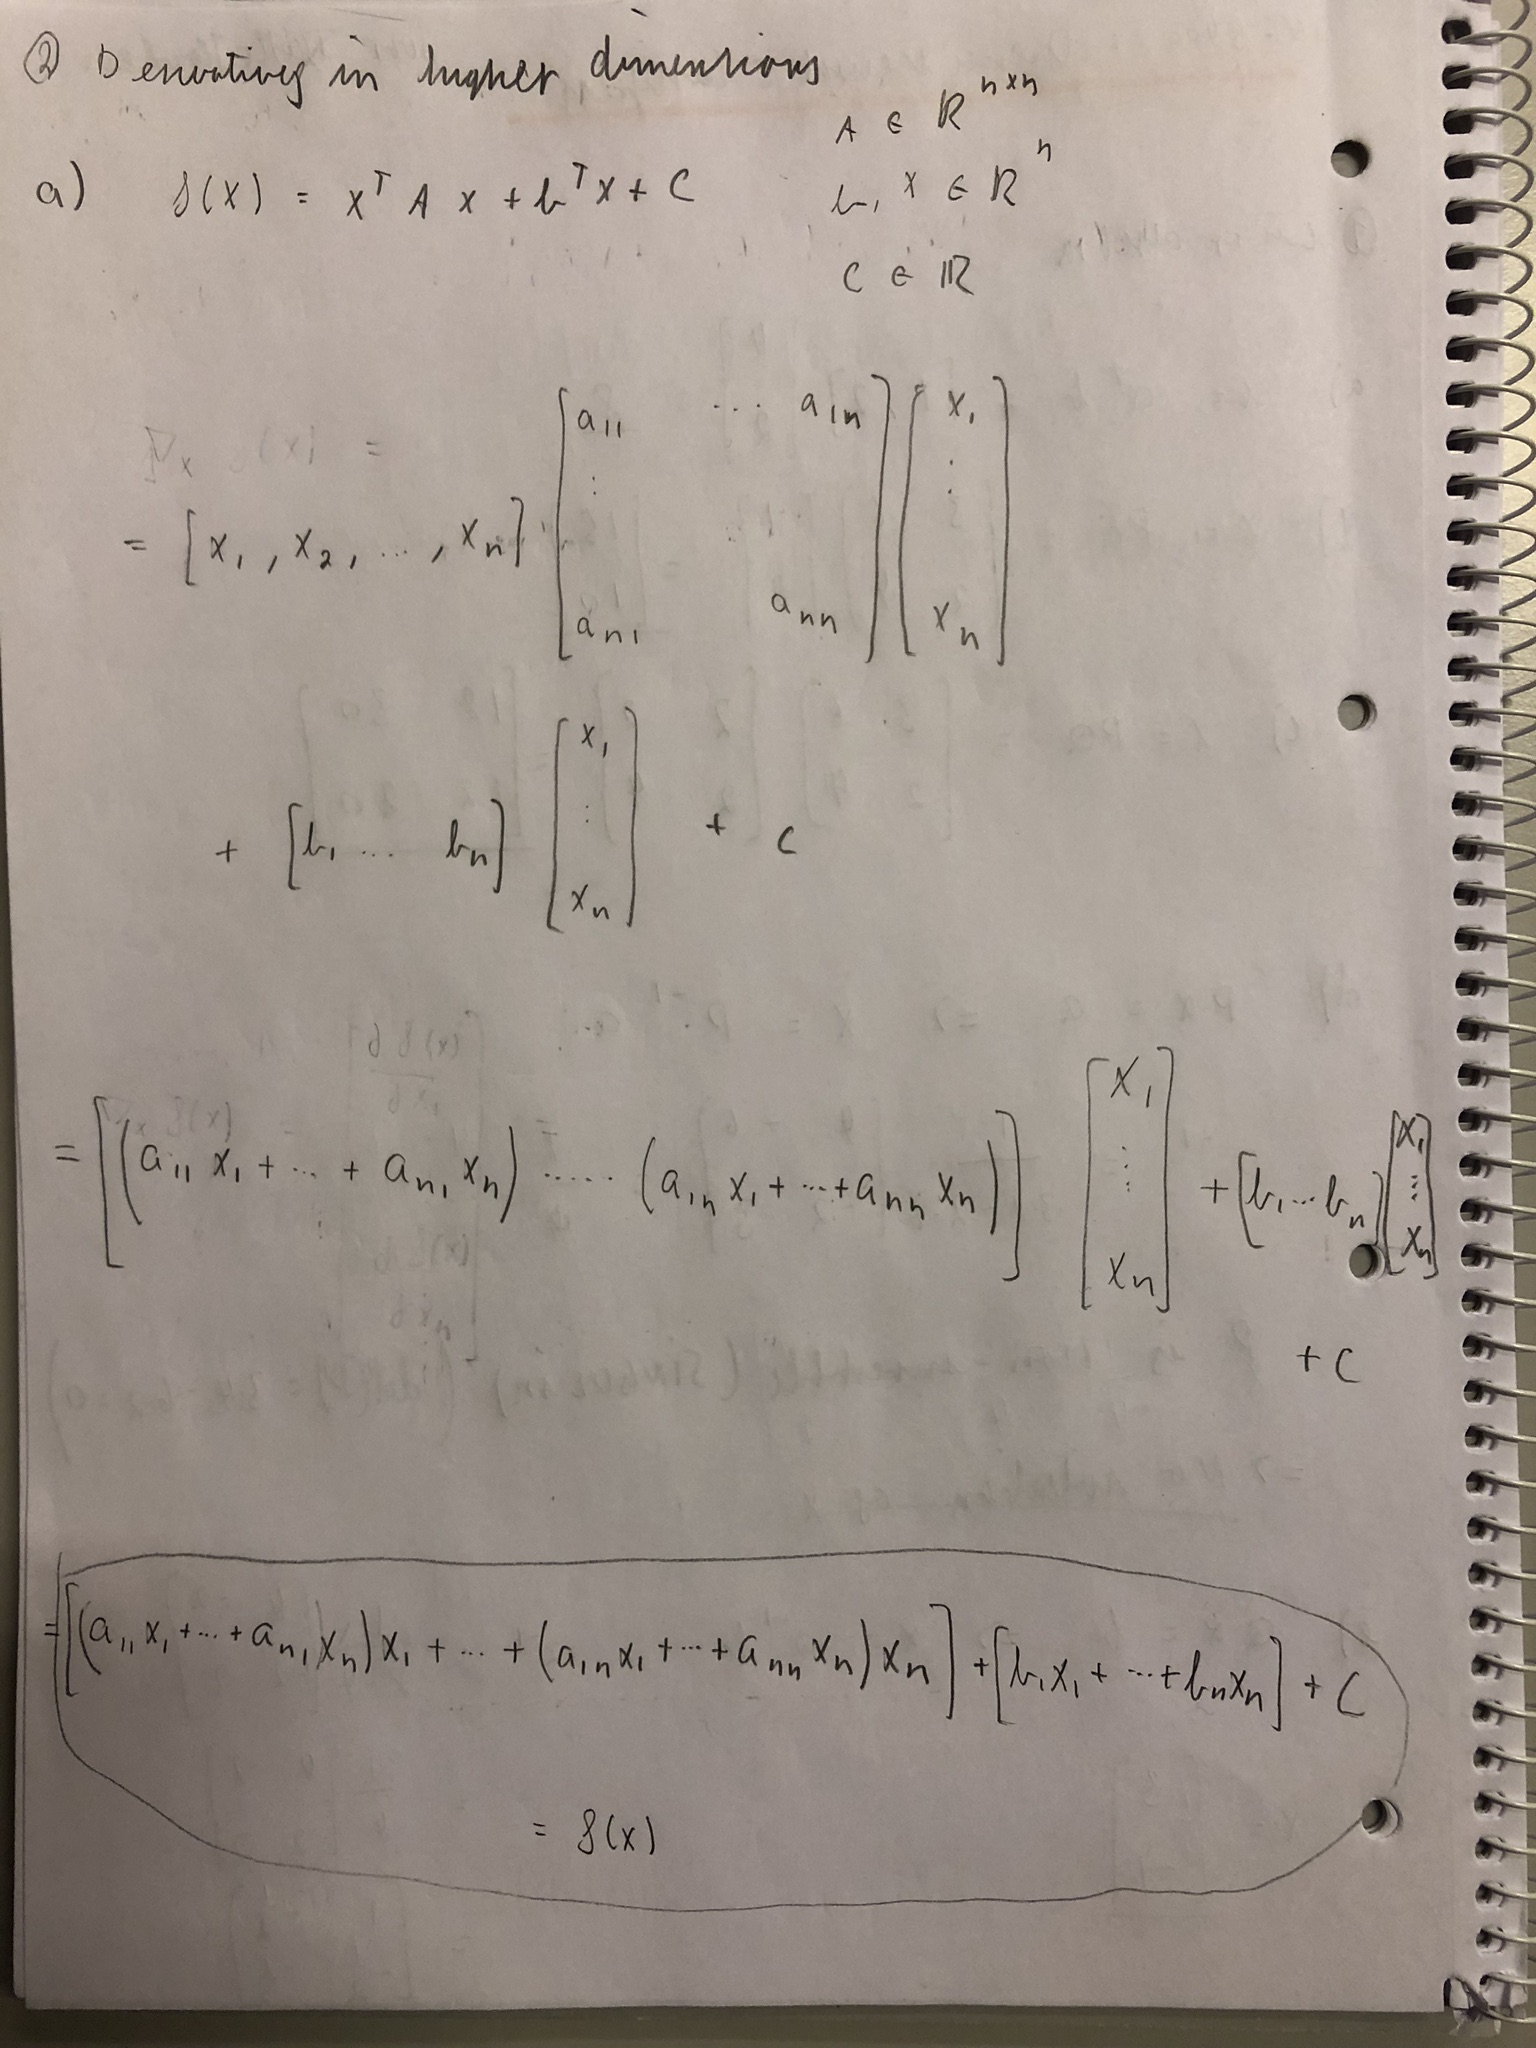 ② Derivatives in higher dimensions
A ∈ ℝ^{n×n}
a) f(x) = x^T A x + b^T x + C
b, x ∈ ℝ^n
C ∈ ℝ
= [x₁, x₂, ..., xₙ] [a₁₁ ... a₁ₙ ; ⋮ ; aₙ₁ aₙₙ] [x₁ ; ⋮ ; xₙ]
+ [b₁ ... bₙ] [x₁ ; ⋮ ; xₙ] + C
= [(a₁₁ x₁ + ... + aₙ₁ xₙ) ..... (a₁ₙ x₁ + ... + aₙₙ xₙ)] [x₁ ; ⋮ ; xₙ] + [b₁ ... bₙ] [x₁ ; ⋮ ; xₙ]
+ C
= [(a₁₁ x₁ + ... + aₙ₁ xₙ) x₁ + ... + (a₁ₙ x₁ + ... + aₙₙ xₙ) xₙ] + [b₁x₁ + ... + bₙxₙ] + C
= f(x)